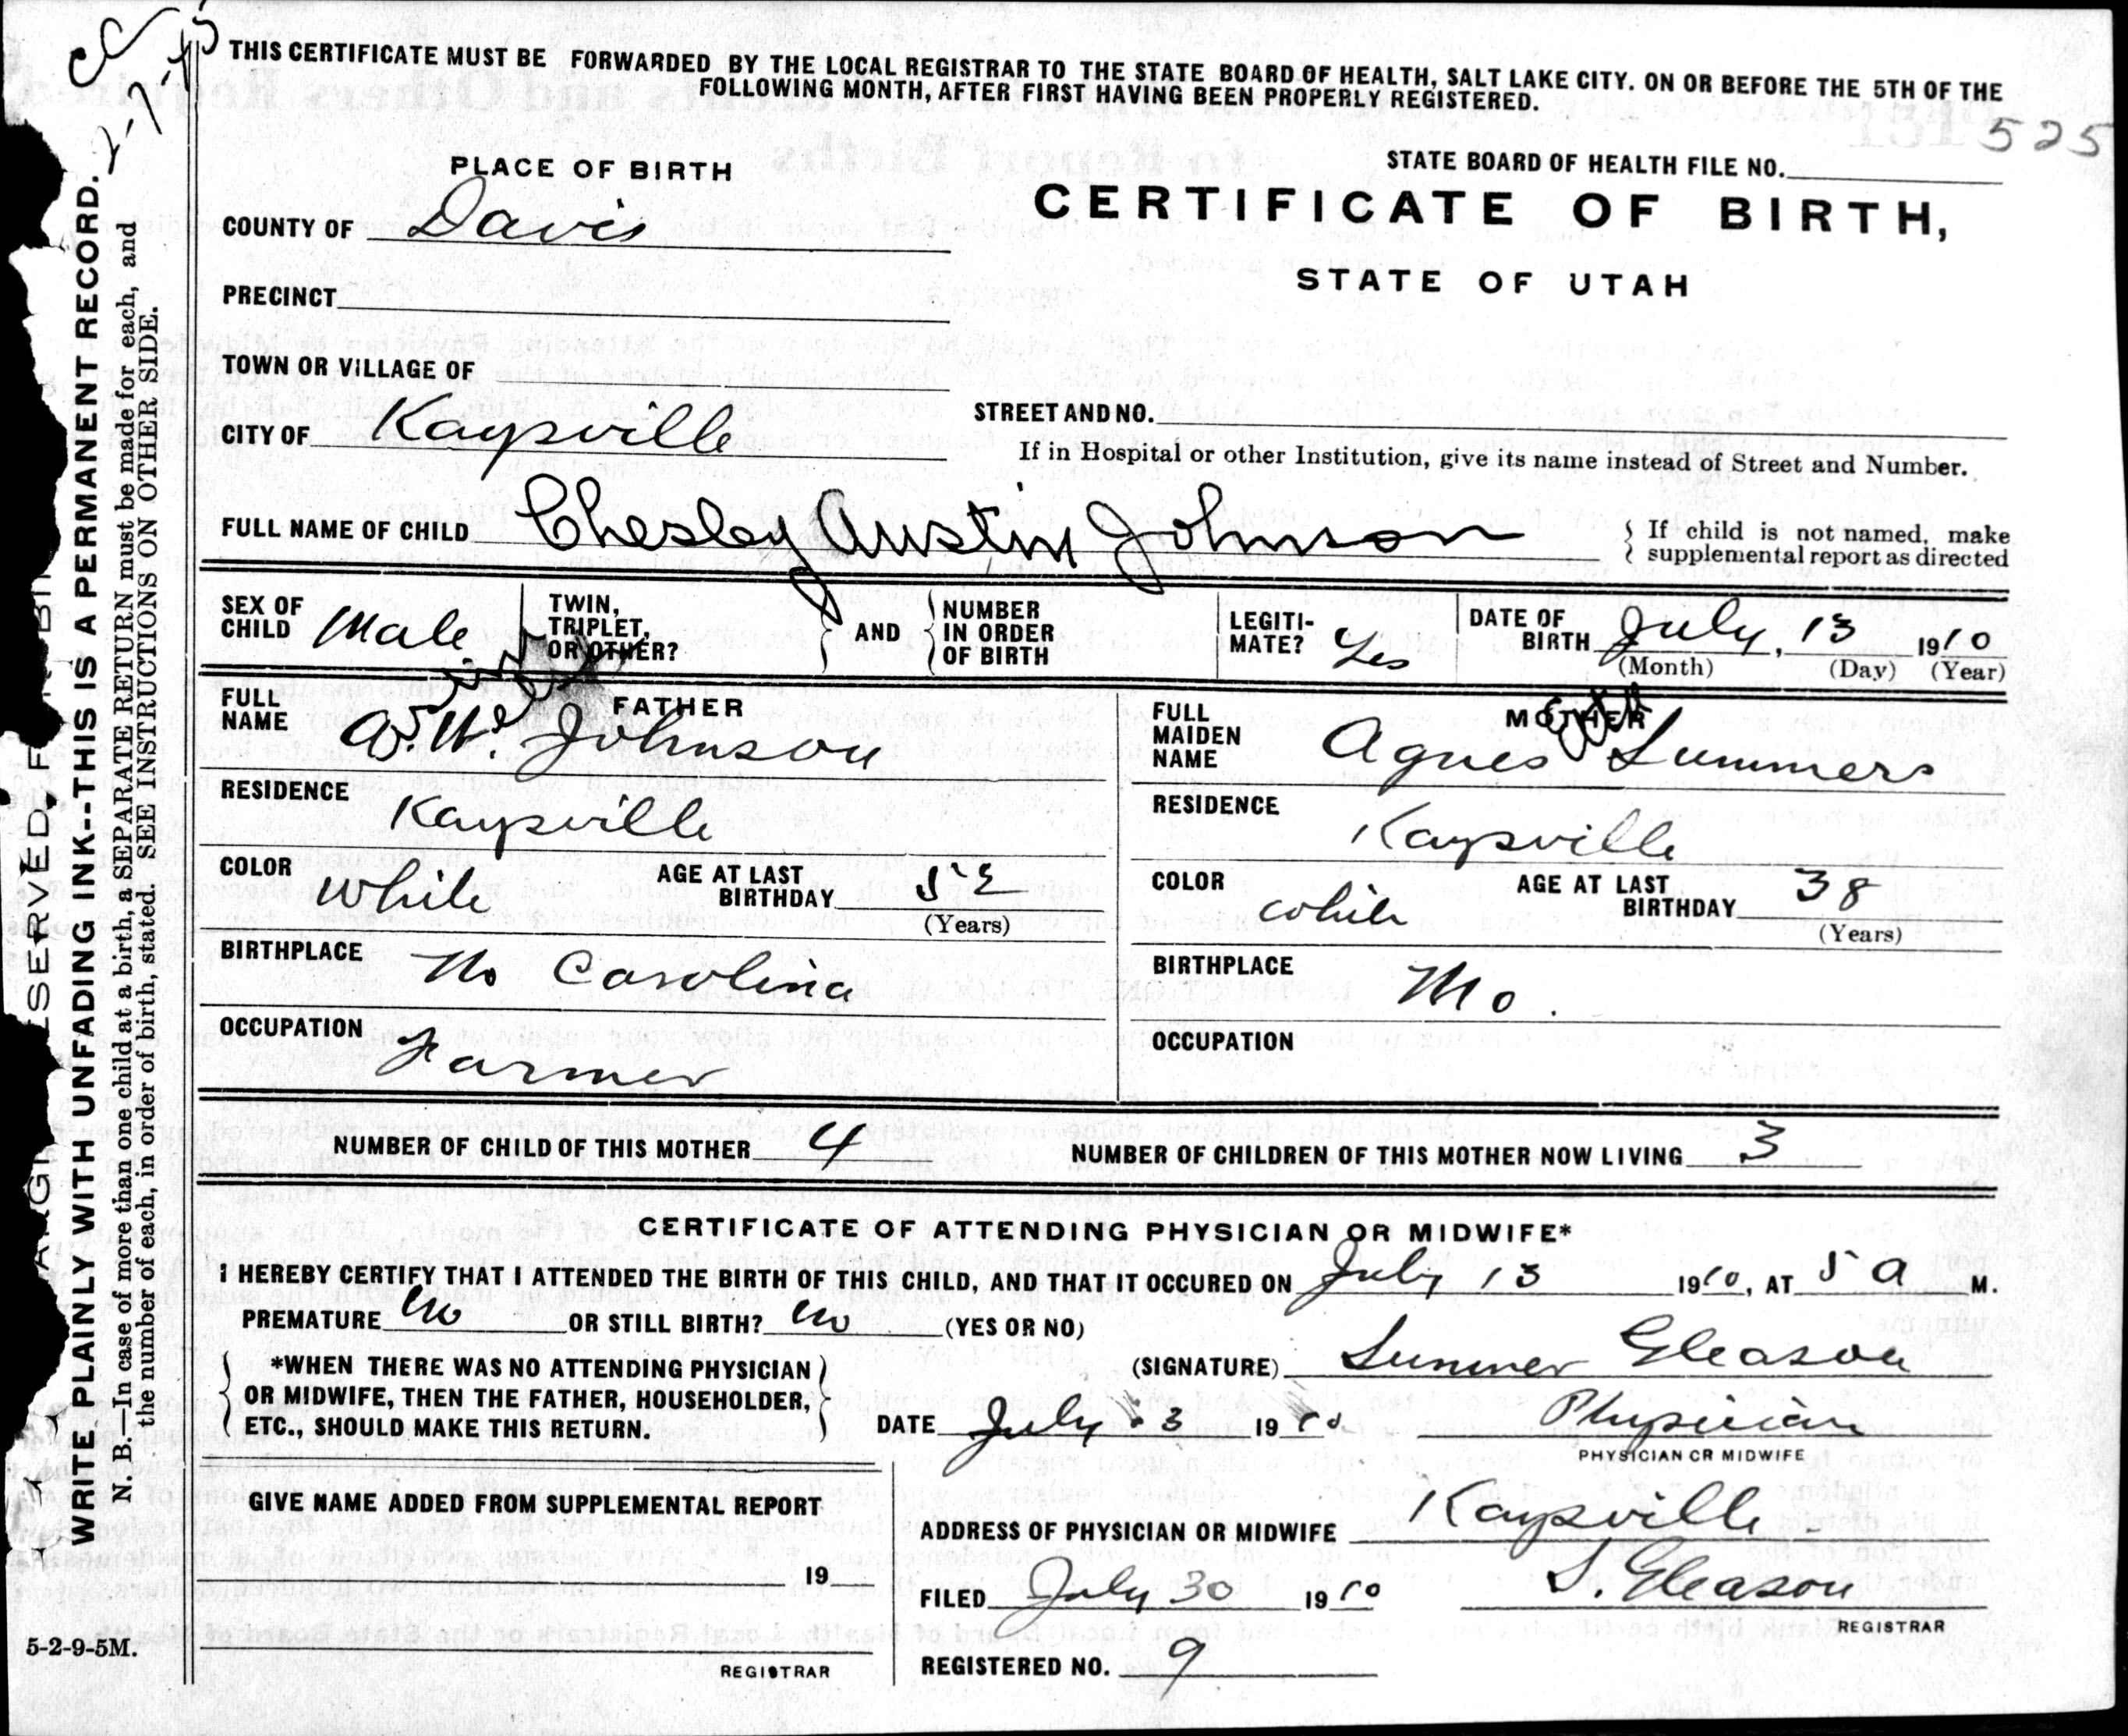 THIS CERTIFICATE MUST BE FORWARDED BY THE LOCAL REGISTRAR TO THE STATE BOARD OF HEALTH, SALT LAKE CITY. ON OR BEFORE THE 5TH OF THE
FOLLOWING MONTH, AFTER FIRST HAVING BEEN PROPERLY REGISTERED.
525
PLACE OF BIRTH
STATE BOARD OF HEALTH FILE NO.
COUNTY OF Davis
CERTIFICATE OF BIRTH,
STATE OF UTAH
PRECINCT
TOWN OR VILLAGE OF
CITY OF Kaysville
STREET AND NO.
If in Hospital or other Institution, give its name instead of Street and Number.
FULL NAME OF CHILD Chesley Austin Johnson
If child is not named, make
supplemental report as directed
SEX OF CHILD Male
TWIN, TRIPLET, OR OTHER?
AND
NUMBER IN ORDER OF BIRTH
LEGITI-MATE? Yes
DATE OF BIRTH July, 13 1910
(Month) (Day) (Year)
FATHER
FULL NAME Johnson
MOTHER
FULL MAIDEN NAME Agnes Summers
RESIDENCE Kaysville
RESIDENCE Kaysville
COLOR White
AGE AT LAST BIRTHDAY
(Years)
COLOR White
AGE AT LAST BIRTHDAY 38
(Years)
BIRTHPLACE No Carolina
BIRTHPLACE Mo.
OCCUPATION Farmer
OCCUPATION
NUMBER OF CHILD OF THIS MOTHER 4
NUMBER OF CHILDREN OF THIS MOTHER NOW LIVING 3
CERTIFICATE OF ATTENDING PHYSICIAN OR MIDWIFE*
I HEREBY CERTIFY THAT I ATTENDED THE BIRTH OF THIS CHILD, AND THAT IT OCCURED ON July 13 1910, AT 5 A M.
PREMATURE No OR STILL BIRTH? No (YES OR NO)
*WHEN THERE WAS NO ATTENDING PHYSICIAN
OR MIDWIFE, THEN THE FATHER, HOUSEHOLDER,
ETC., SHOULD MAKE THIS RETURN.
(SIGNATURE) Sumner Gleason
DATE July 13 1910
Physician
PHYSICIAN OR MIDWIFE
GIVE NAME ADDED FROM SUPPLEMENTAL REPORT
ADDRESS OF PHYSICIAN OR MIDWIFE Kaysville
19
FILED July 30 1910
S. Gleason
REGISTRAR
REGISTRAR
REGISTERED NO. 9
5-2-9-5M.
WRITE PLAINLY WITH UNFADING INK--THIS IS A PERMANENT RECORD.
N. B.—In case of more than one child at a birth, a SEPARATE RETURN must be made for each, and
the number of each, in order of birth, stated. SEE INSTRUCTIONS ON OTHER SIDE.